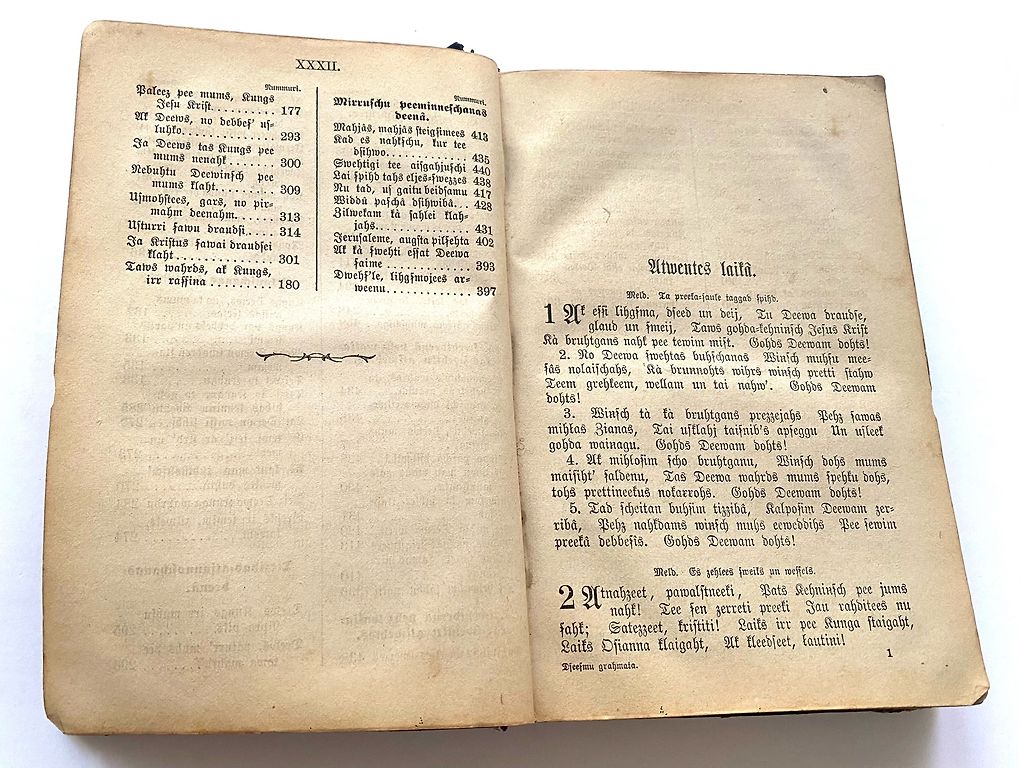 XXXII.
Nummuri.
Paleez pee mums, Kungs
Jesu Krist. . . . . . . . . . 177
Ak Deews, no debbeſ' uſ-
luhko. . . . . . . . . . . . . . 293
Ja Deews tas Kungs pee
mums nenahk . . . . . . . 300
Nebuhtu Deewinſch pee
mums klaht. . . . . . . . . 309
Uſmohſtees, gars, no pir-
mahm deenahm. . . . . . 313
Uſturri ſawu draudſi. . . . 314
Ja Kriſtus ſawai draudſei
klaht . . . . . . . . . . . . . . 301
Taws wahrds, ak Kungs,
irr raſſina . . . . . . . . . . 180
Nummuri.
Mirruſchu peeminneſchanas
deenâ.
Mahjâs, mahjâs ſteigſimees 413
Kad es nahkſchu, kur tee
dſihwo. . . . . . . . . . . . 435
Swehtigi tee aiſgahjuſchi 440
Lai ſpihd tahs eljes-ſwezzes 438
Nu tad, uſ gaitu beidſamu 417
Widdû paſchâ dſihwibâ. . . 428
Zilwekam kà ſahlei klah-
jahs. . . . . . . . . . . . . . 431
Jeruſaleme, augſta pilſehta 402
Ak kà ſwehti eſſat Deewa
ſaime . . . . . . . . . . . . . 393
Dwehſ'le, lihgſmojees ar-
weenu. . . . . . . . . . . . . 397
Atwentes laikâ.
Meld. Ta preeka-ſaule taggad ſpihd.
1 Ak eſſi lihgſma, dſeed un deij, Tu Deewa draudſe,
glaud un ſmeij, Taws gohda-kehninſch Jeſus Kriſt
Kà bruhtgans nahk pee tewim miſt. Gohds Deewam dohts!
2. No Deewa ſwehtas buhſchanas Winſch muhſu mee-
ſâs nolaiſchahs, Kà brunnohts wihrs winſch pretti ſtahw
Teem grehkeem, wellam un tai nahw'. Gohds Deewam
dohts!
3. Winſch tà kà bruhtgans prezzejahs Pehz ſawas
mihłas Zianas, Tai uſklahj taiſnib's apſeggu Un uſleek
gohda wainagu. Gohds Deewam dohts!
4. Ak mihloſim ſcho bruhtganu, Winſch dohs mums
maiſiht' ſaldenu, Tas Deewa wahrds mums ſpehku dohs,
tohs prettineekus nokarrohs. Gohds Deewam dohts!
5. Tad ſcheitan buhſim tizzibâ, Kalpoſim Deewam zer-
ribâ, Pehz nahkdams winſch muhs eeweddihs Pee ſewim
preekâ debbeſis. Gohds Deewam dohts!
Meld. Es zehlees ſweiks un weſſels.
2 Atnahzeet, pawalſtneeki, Pats Kehninſch pee jums
nahk! Tee ſen zerreti preeki Jau rahditees nu
ſahk; Satezzeet, kriſtiti! Laiks irr pee Kunga ſtaigaht,
Laiks Oſianna klaigaht, Ak kleedſeet, ļautini!
Dſeeſmu grahmata.
1